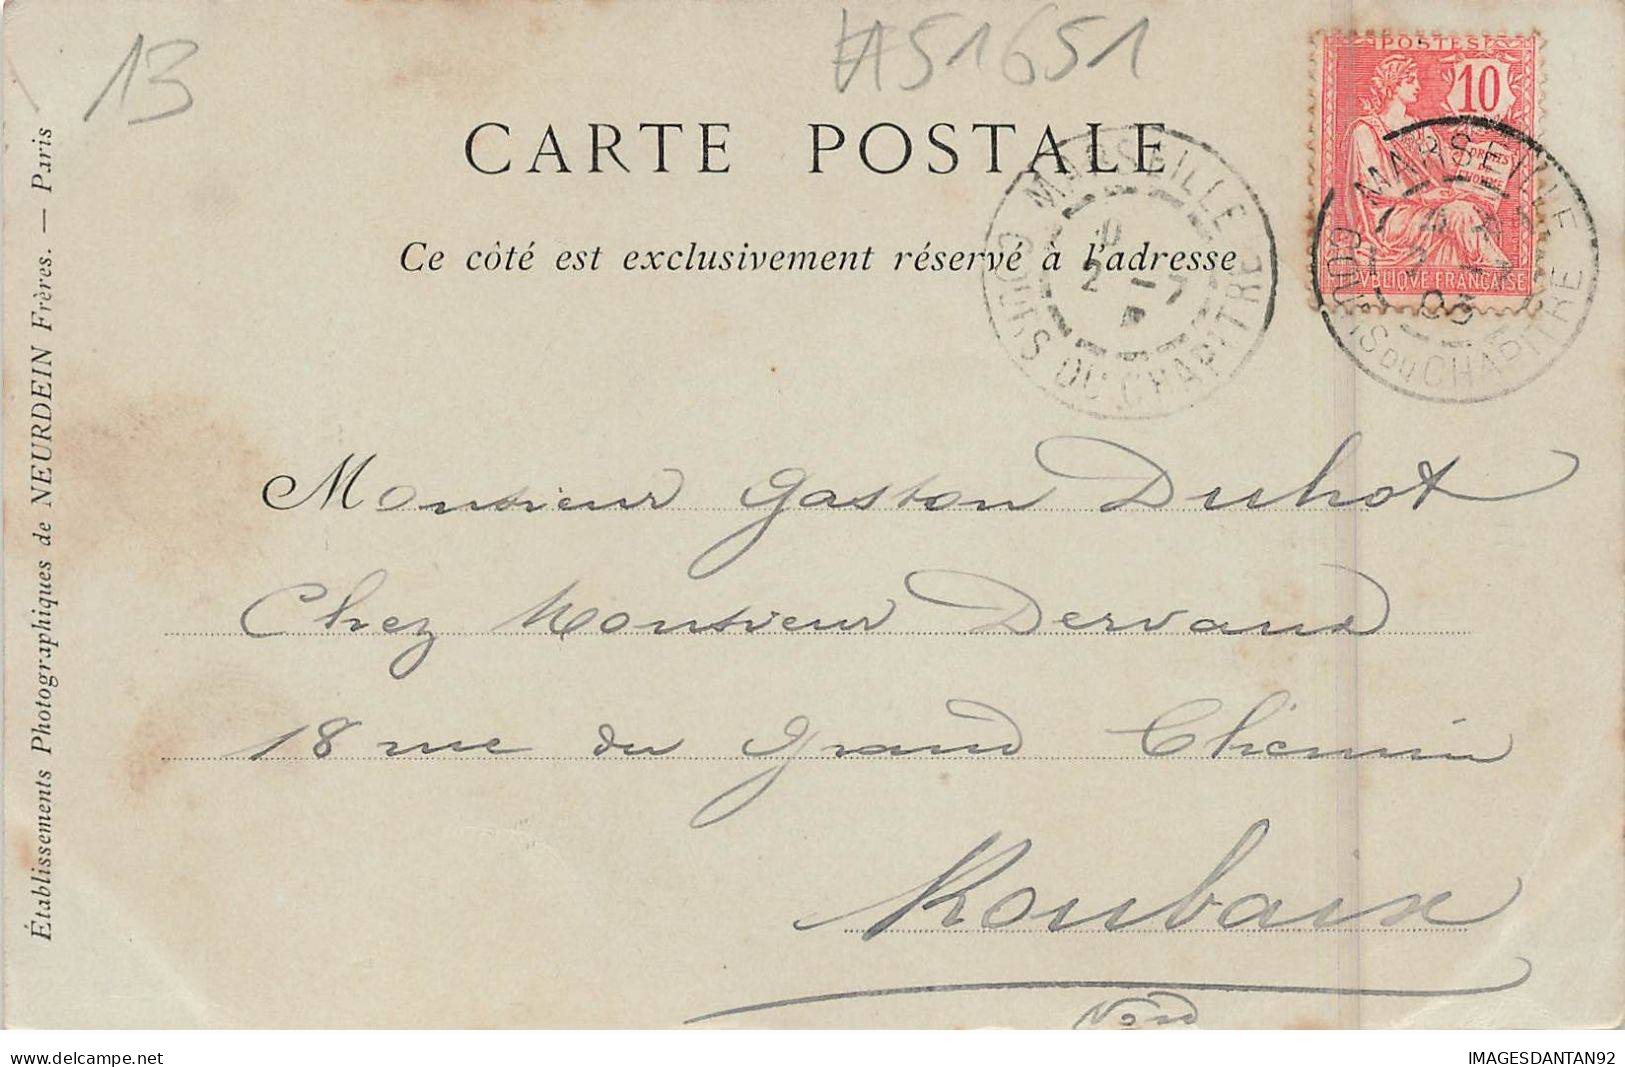 13
#51651
POSTES
10
DROITS
DE
L'HOMME
RÉPUBLIQUE FRANÇAISE
CARTE POSTALE
MARSEILLE
2 - 7
COURS DU CHAPITRE
MARSEILLE
03
COURS DU CHAPITRE
Ce côté est exclusivement réservé à l'adresse
Établissements Photographiques de NEURDEIN Frères. — Paris
Monsieur Gaston Duhot
Chez Monsieur Dervaux
18 rue du Grand Chemin
Roubaix
Nord
www.delcampe.net
IMAGESDANTAN92